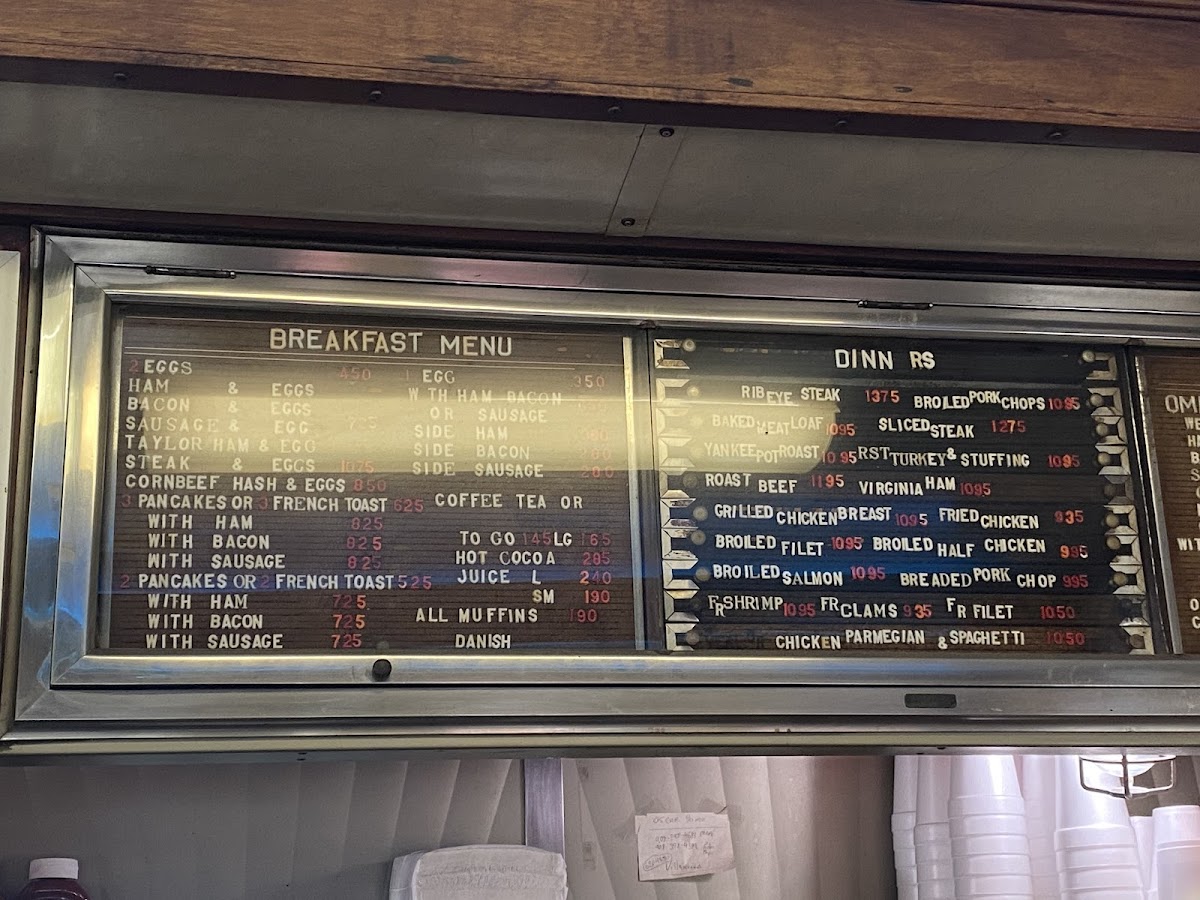 BREAKFAST MENU
2 EGGS 450
HAM & EGGS
BACON & EGGS
SAUSAGE & EGG 725
TAYLOR HAM & EGG
STEAK & EGGS 1075
CORNBEEF HASH & EGGS 850
3 PANCAKES OR 3 FRENCH TOAST 625
WITH HAM 825
WITH BACON 825
WITH SAUSAGE 825
2 PANCAKES OR 2 FRENCH TOAST 525
WITH HAM 725
WITH BACON 725
WITH SAUSAGE 725
1 EGG 350
W TH HAM BACON
OR SAUSAGE
SIDE HAM
SIDE BACON
SIDE SAUSAGE
COFFEE TEA OR
TO GO 145 LG 165
HOT COCOA 285
JUICE L 240
SM 190
ALL MUFFINS 190
DANISH
DINN RS
RIB EYE STEAK 1375 BROILED PORK CHOPS 1095
BAKED MEAT LOAF 1095 SLICED STEAK 1275
YANKEE POT ROAST 1095 RST TURKEY & STUFFING 1095
ROAST BEEF 1195 VIRGINIA HAM 1095
GRILLED CHICKEN BREAST 1095 FRIED CHICKEN 935
BROILED FILET 1095 BROILED HALF CHICKEN 995
BROILED SALMON 1095 BREADED PORK CHOP 995
FR SHRIMP 1095 FR CLAMS 935 FR FILET 1050
CHICKEN PARMEGIAN & SPAGHETTI 1050